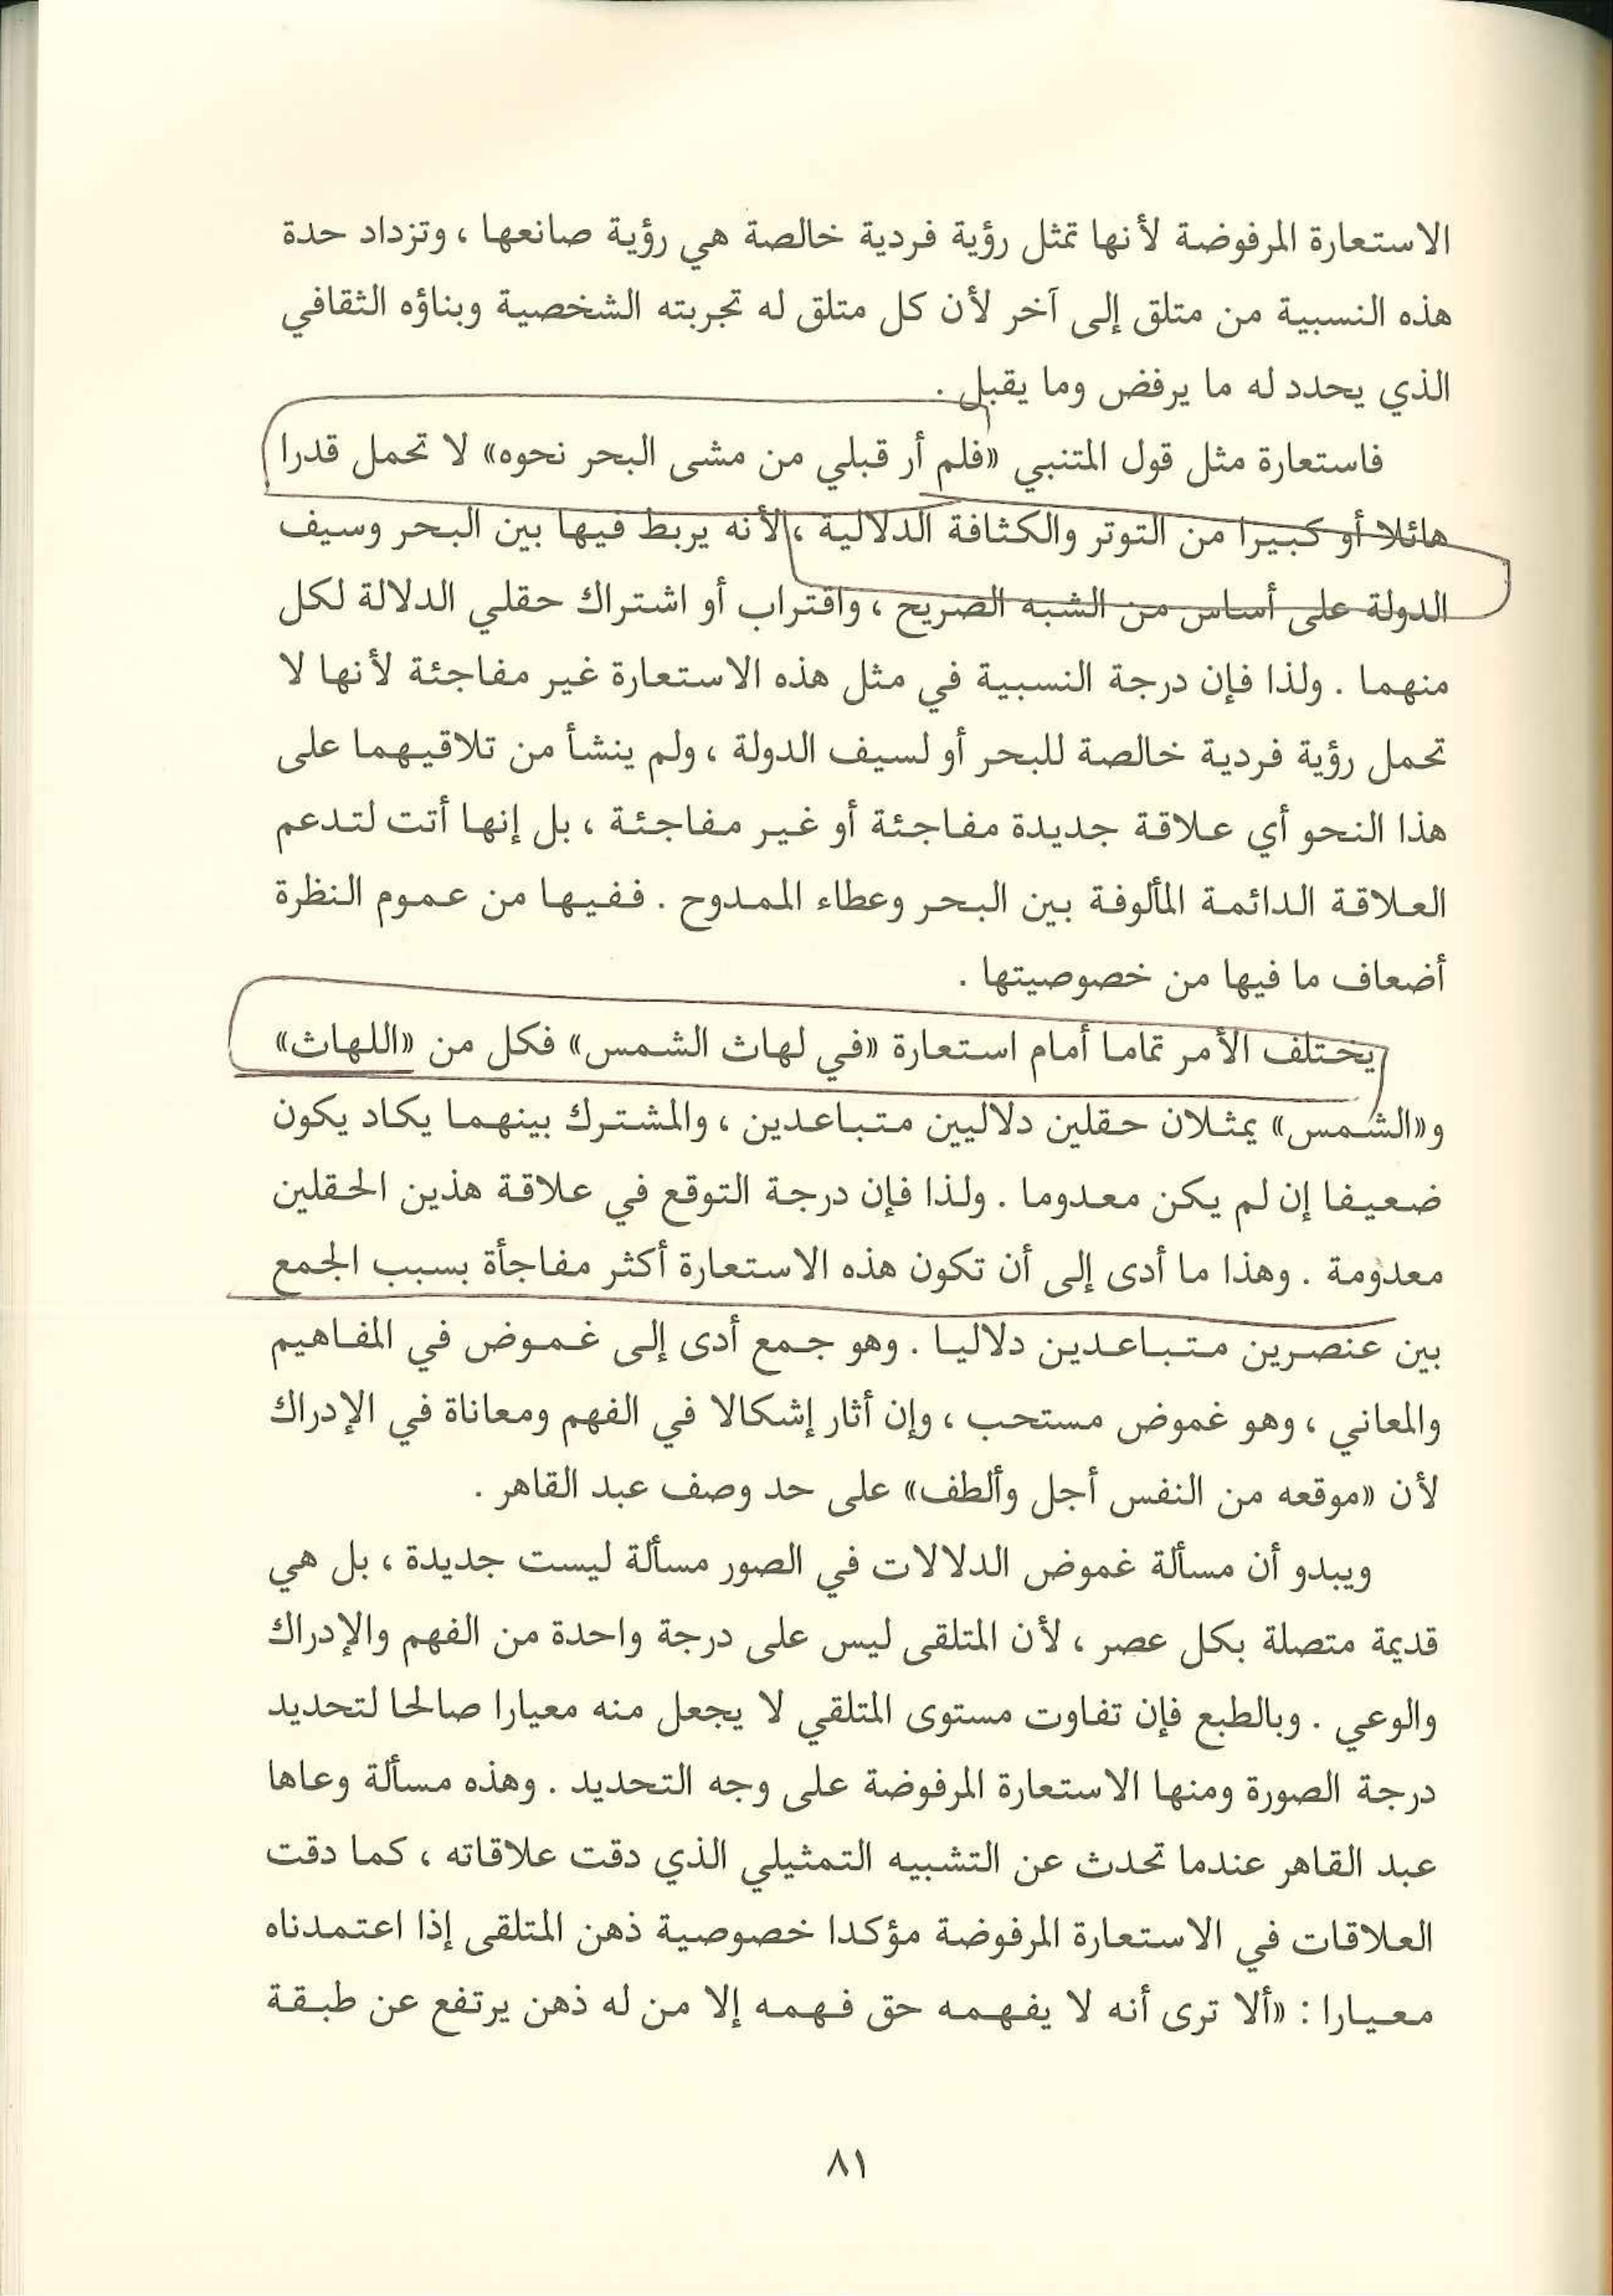 الاستعارة المرفوضة لأنها تمثل رؤية فردية خالصة هي رؤية صانعها ، وتزداد حدة
هذه النسبية من متلق إلى آخر لأن كل متلق له تجربته الشخصية وبناؤه الثقافي
الذي يحدد له ما يرفض وما يقبل .
فاستعارة مثل قول المتنبي «فلم أر قبلي من مشى البحر نحوه» لا تحمل قدرا
هائلا أو كبيرا من التوتر والكثافة الدلالية ، لأنه يربط فيها بين البحر وسيف
الدولة على أساس من الشبه الصريح ، واقتراب أو اشتراك حقلي الدلالة لكل
منهما . ولذا فإن درجة النسبية في مثل هذه الاستعارة غير مفاجئة لأنها لا
تحمل رؤية فردية خالصة للبحر أو لسيف الدولة ، ولم ينشأ من تلاقيهما على
هذا النحو أي علاقة جديدة مفاجئة أو غير مفاجئة ، بل إنها أتت لتدعم
العلاقة الدائمة المألوفة بين البحر وعطاء الممدوح . ففيها من عموم النظرة
أضعاف ما فيها من خصوصيتها .
يختلف الأمر تماما أمام استعارة «في لهاث الشمس» فكل من «اللهاث»
و«الشمس» يمثلان حقلين دلاليين متباعدين ، والمشترك بينهما يكاد يكون
ضعيفا إن لم يكن معدوما . ولذا فإن درجة التوقع في علاقة هذين الحقلين
معدومة . وهذا ما أدى إلى أن تكون هذه الاستعارة أكثر مفاجأة بسبب الجمع
بين عنصرين متباعدين دلاليا . وهو جمع أدى إلى غموض في المفاهيم
والمعاني ، وهو غموض مستحب ، وإن أثار إشكالا في الفهم ومعاناة في الإدراك
لأن «موقعه من النفس أجل وألطف» على حد وصف عبد القاهر .
ويبدو أن مسألة غموض الدلالات في الصور مسألة ليست جديدة ، بل هي
قديمة متصلة بكل عصر ، لأن المتلقى ليس على درجة واحدة من الفهم والإدراك
والوعي . وبالطبع فإن تفاوت مستوى المتلقي لا يجعل منه معيارا صالحا لتحديد
درجة الصورة ومنها الاستعارة المرفوضة على وجه التحديد . وهذه مسألة وعاها
عبد القاهر عندما تحدث عن التشبيه التمثيلي الذي دقت علاقاته ، كما دقت
العلاقات في الاستعارة المرفوضة مؤكدا خصوصية ذهن المتلقى إذا اعتمدناه
معيارا : «ألا ترى أنه لا يفهمه حق فهمه إلا من له ذهن يرتفع عن طبقة
٨١